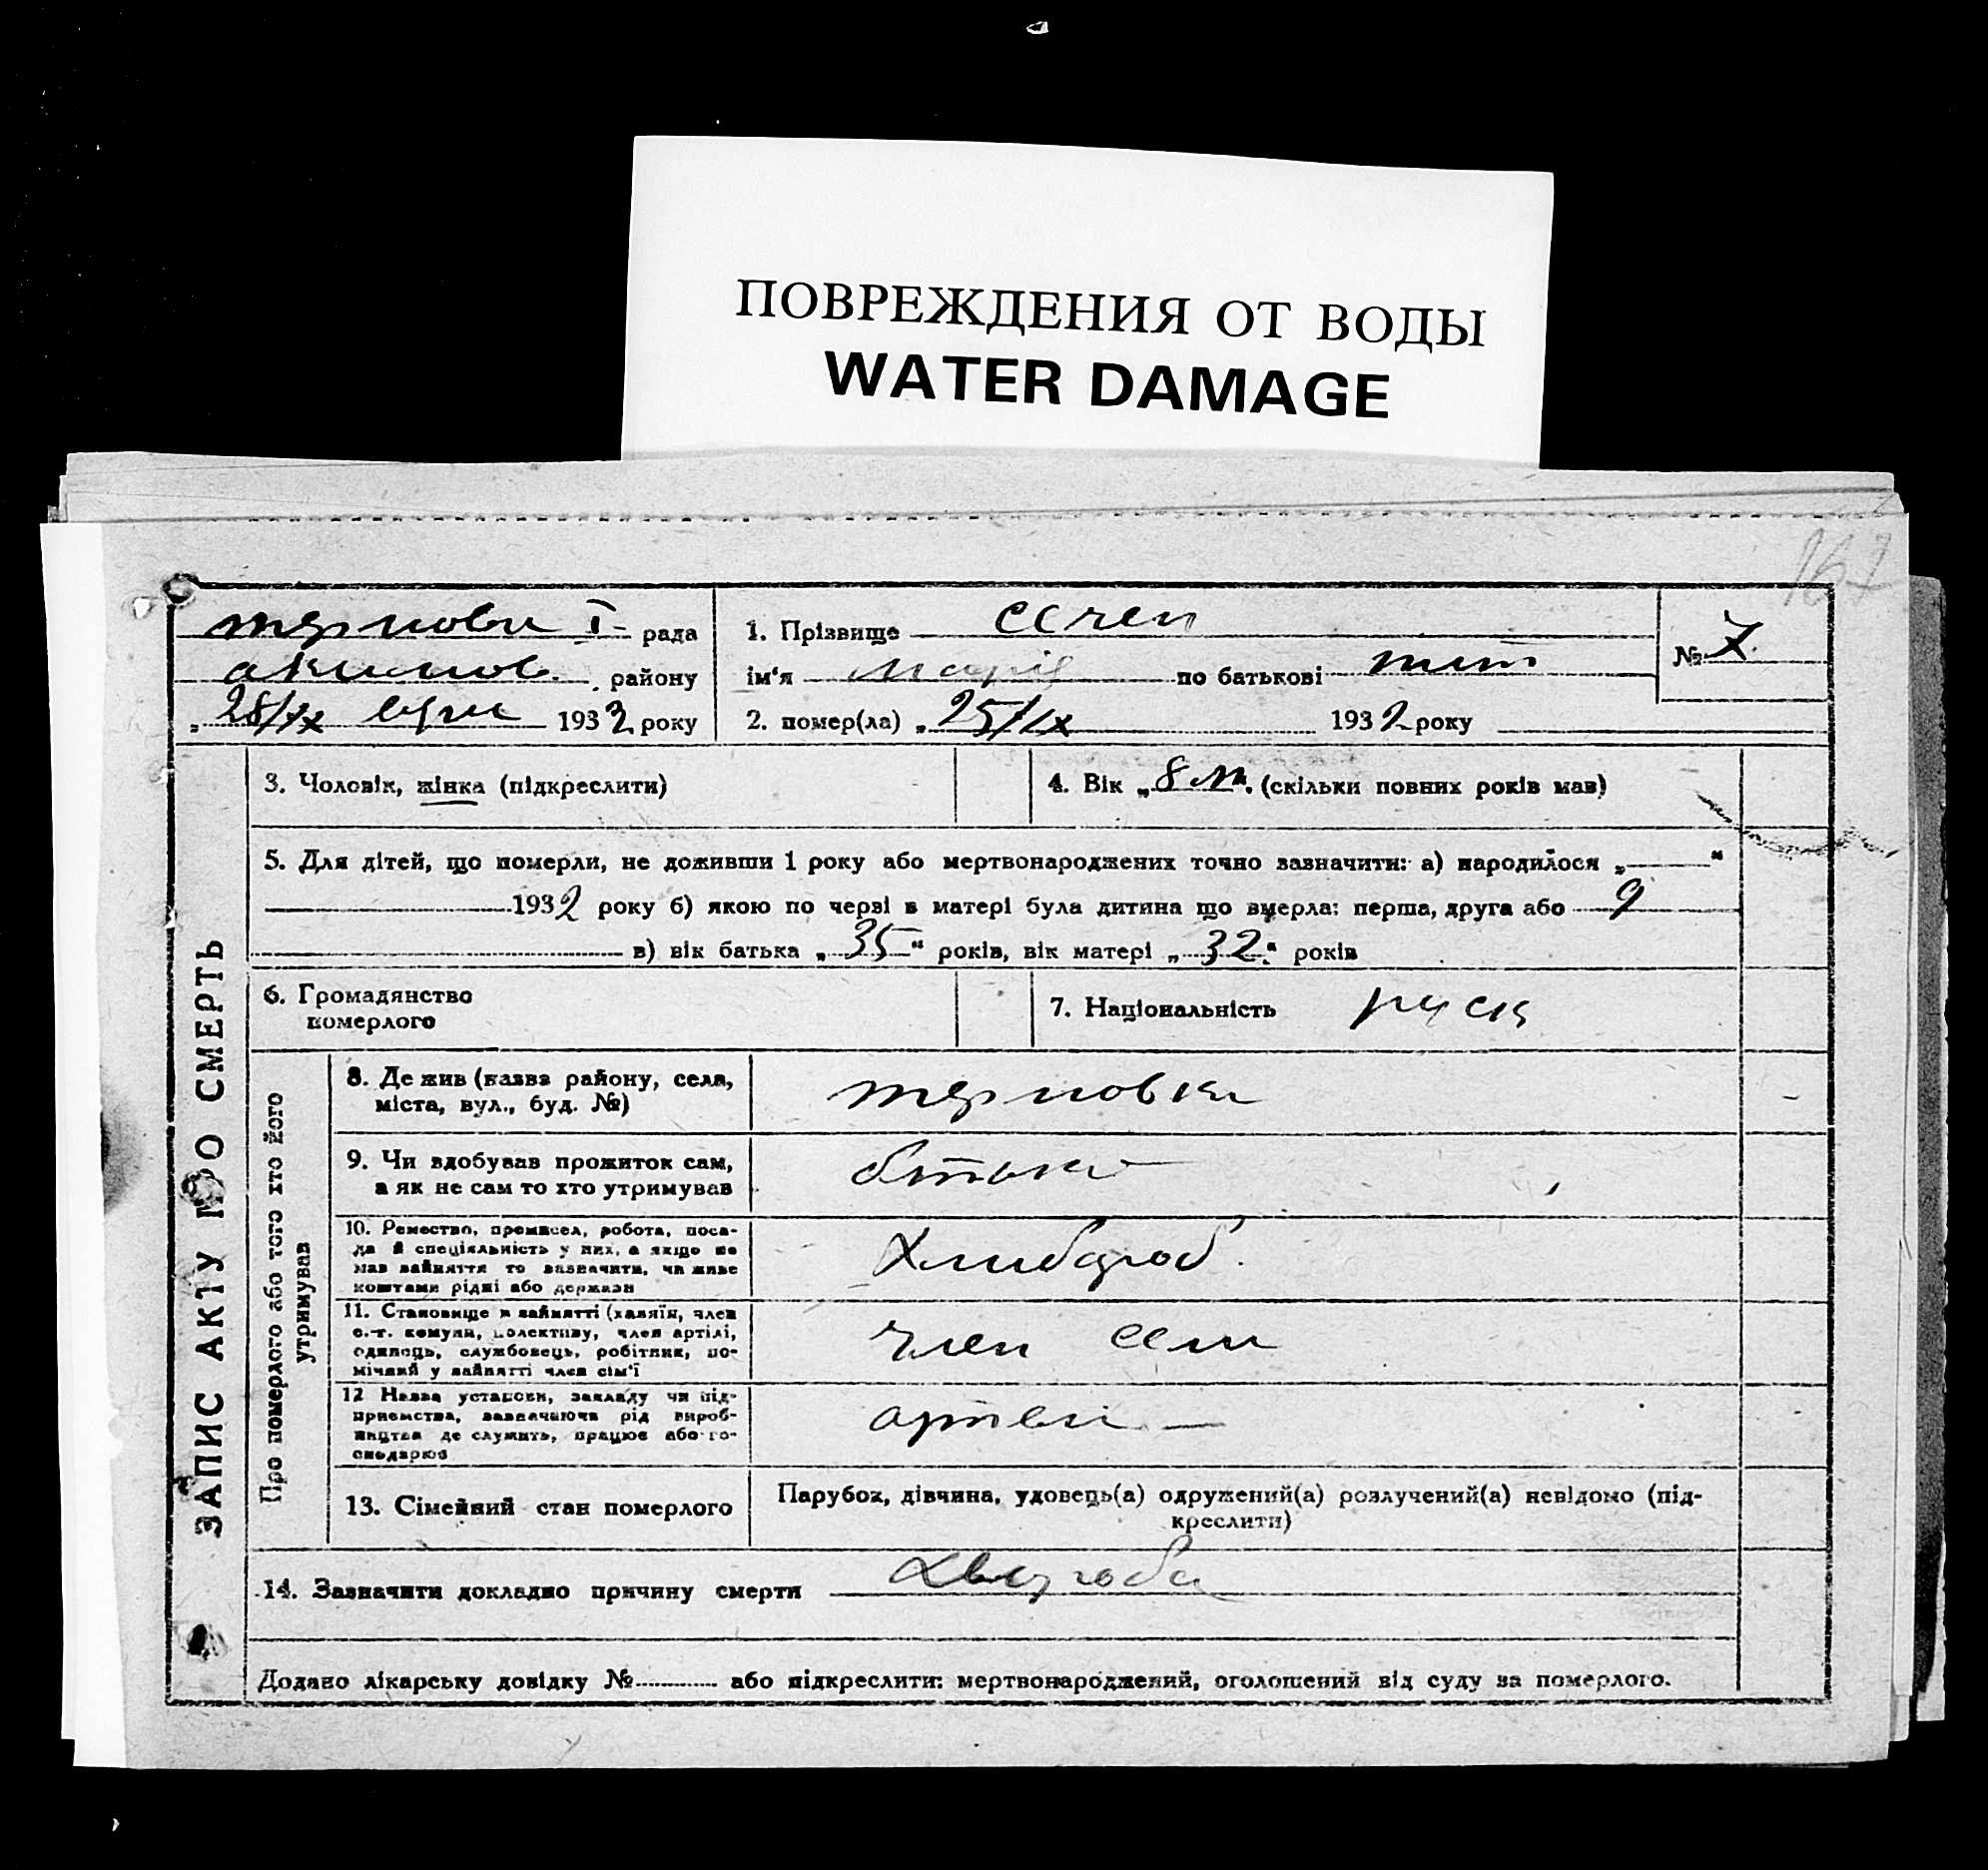 ПОВРЕЖДЕНИЯ ОТ ВОДЫ
WATER DAMAGE
167
рада
району
28/IX 1932 року
1. Прізвище
ім'я Марія по батькові тит
2. помер(ла) „ 25/IX 1932 року
№ 7.
ЗАПИС АКТУ ПРО СМЕРТЬ
3. Чоловік, жінка (підкреслити)
4. Вік „ 8 м". (скільки повних років мав)
5. Для дітей, що померли, не доживши 1 року або мертвонароджених точно зазначити: а) народилося „ "
1932 року б) якою по черзі в матері була дитина що вмерла: перша, друга або 9
в) вік батька „ 35 " років, вік матері „ 32 " років
6. Громадянство
померлого
7. Національність руск
Про померлого або того хто його
утримував
8. Де жив (назва району, села,
міста, вул., буд. №)
терновка
9. Чи здобував прожиток сам,
а як не сам то хто утримував
10. Ремество, промисел, робота, поса-
да й спеціяльність у них, а якщо не
мав зайняття то зазначити, чи живе
коштами рідні або держави
Хлибороб.
11. Становище в зайнятті (хазяїн, член
с.-г. комуни, колективу, член артілі,
одинець, службовець, робітник, по-
мічний у зайнятті член сім'ї
член сем
12 Назва установи, закладу чи під-
приємства, зазначаючи рід вироб-
ництва де служить, працює або го-
сподарює
артели —
13. Сімейний стан померлого
Парубок, дівчина, удовець(а) одружений(а) розлучений(а) невідомо (під-
креслити)
14. Зазначити докладно причину смерти
Хвороба
Додано лікарську довідку № або підкреслити: мертвонароджений, оголошений від суду за померлого.